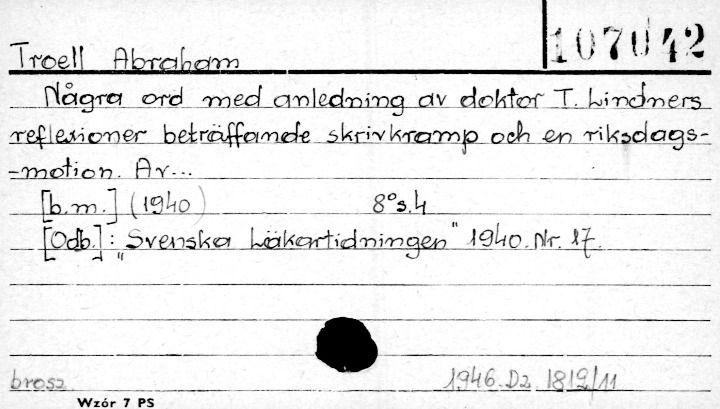 107042
Troell Abraham
Några ord med anledning av doktor T. Lindners
reflexioner beträffande skrivkramp och en riksdags-
-motion. Av...
[b.m.] (1940) 8°s.4
[Odb.]: "Svenska Läkartidningen" 1940. Nr. 17.
brosz. 1946. Dz. 1819/11
Wzór 7 PS